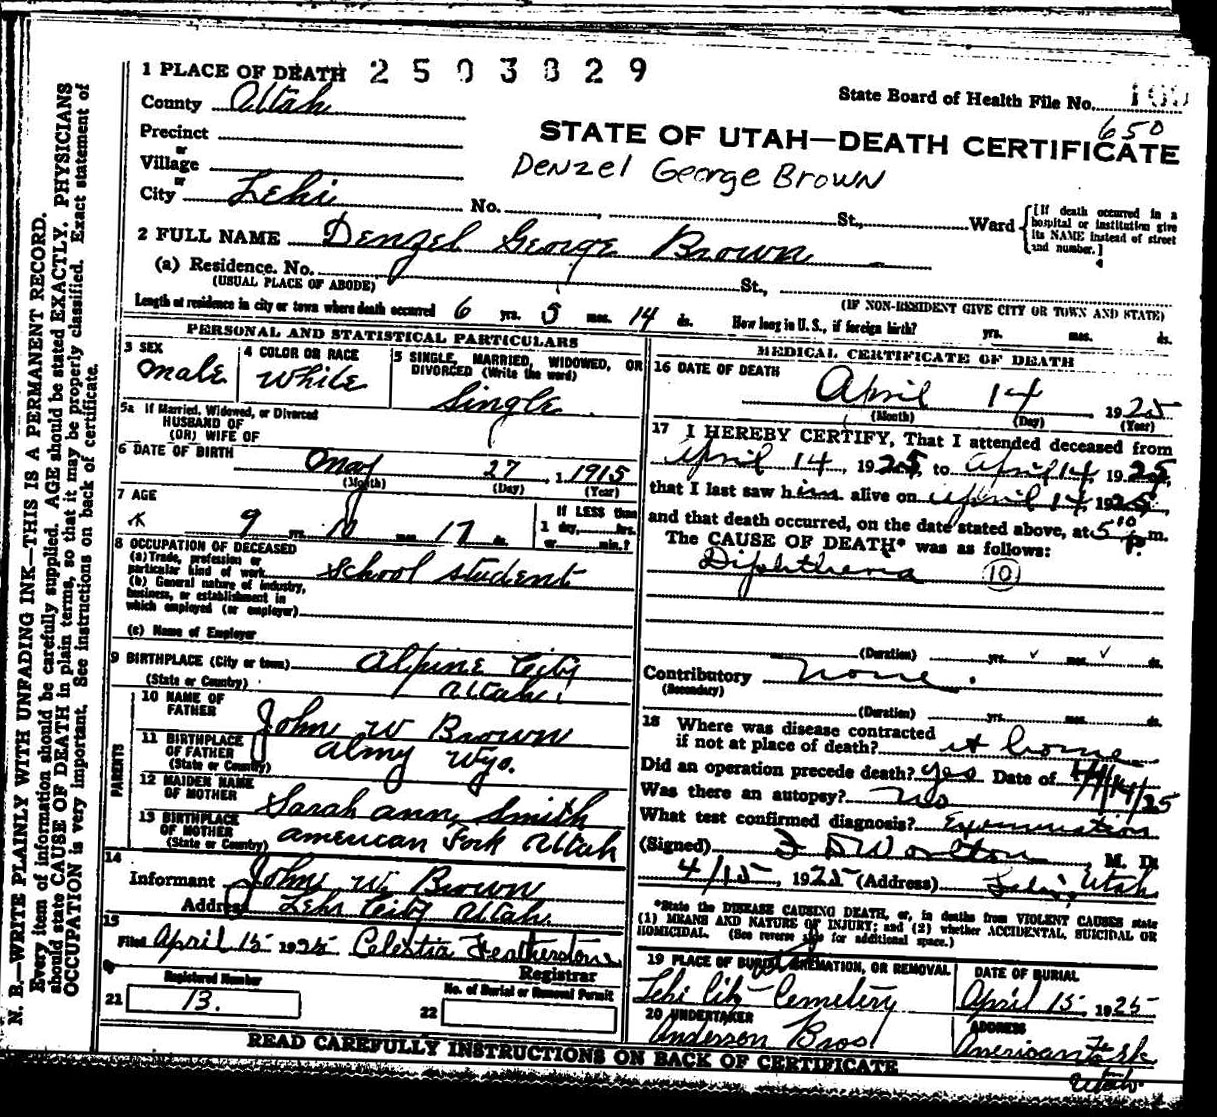 1 PLACE OF DEATH 2503829
State Board of Health File No.
650
County Utah
STATE OF UTAH—DEATH CERTIFICATE
Precinct
or
Village
Denzel George Brown
or
City Lehi No. St., Ward
[If death occurred in a hospital or institution give its NAME instead of street and number.]
2 FULL NAME Denzel George Brown
(a) Residence. No. St.,
(USUAL PLACE OF ABODE)
(IF NON-RESIDENT GIVE CITY OR TOWN AND STATE)
Length of residence in city or town where death occurred 6 yrs. 5 mos. 14 ds. How long in U. S., if foreign birth? yrs. mos. ds.
PERSONAL AND STATISTICAL PARTICULARS
3 SEX
Male
4 COLOR OR RACE
White
5 SINGLE, MARRIED, WIDOWED, OR DIVORCED (Write the word)
Single
5a If Married, Widowed, or Divorced
HUSBAND OF
(OR) WIFE OF
6 DATE OF BIRTH May 27, 1915
(Month) (Day) (Year)
7 AGE
9 yrs. 10 mos. 17 ds.
If LESS than
1 day, hrs.
or min.?
8 OCCUPATION OF DECEASED
(a) Trade, profession or
particular kind of work School student
(b) General nature of industry,
business, or establishment in
which employed (or employer)
(c) Name of Employer
9 BIRTHPLACE (City or town) Alpine City
(State or Country) Utah
PARENTS
10 NAME OF
FATHER John W Brown
11 BIRTHPLACE
OF FATHER Almy Wyo.
(State or Country)
12 MAIDEN NAME
OF MOTHER Sarah Ann Smith
13 BIRTHPLACE
OF MOTHER American Fork Utah
(State or Country)
14
Informant John W. Brown
Address Lehi City Utah
15
Filed April 15 1925 Celestia Featherstone
Registrar
Registered Number
21 13.
No. of Burial or Removal Permit
22
MEDICAL CERTIFICATE OF DEATH
16 DATE OF DEATH
April 14 1925
(Month) (Day) (Year)
17 I HEREBY CERTIFY, That I attended deceased from
April 14, 1925, to April 14, 1925,
that I last saw him alive on April 14 1925
and that death occurred, on the date stated above, at 5 10 P. m.
The CAUSE OF DEATH* was as follows:
Diphtheria 10
(Duration) yrs. mos. ds.
Contributory None.
(Secondary)
(Duration) yrs. mos. ds.
18 Where was disease contracted
if not at place of death? at home
Did an operation precede death? yes Date of 4/14/25
Was there an autopsy? No
What test confirmed diagnosis? Examination
(Signed) M. D.
4/15, 1925 (Address) Lehi, Utah
*State the DISEASE CAUSING DEATH, or, in deaths from VIOLENT CAUSES state
(1) MEANS AND NATURE OF INJURY; and (2) whether ACCIDENTAL, SUICIDAL OR
HOMICIDAL. (See reverse side for additional space.)
19 PLACE OF BURIAL, CREMATION, OR REMOVAL
Lehi City Cemetery
DATE OF BURIAL
April 15, 1925
20 UNDERTAKER
Anderson Bros
ADDRESS
American Fork
Utah.
READ CAREFULLY INSTRUCTIONS ON BACK OF CERTIFICATE
N. B.—WRITE PLAINLY WITH UNFADING INK—THIS IS A PERMANENT RECORD.
Every item of information should be carefully supplied. AGE should be stated EXACTLY. PHYSICIANS
should state CAUSE OF DEATH in plain terms, so that it may be properly classified. Exact statement of
OCCUPATION is very important. See instructions on back of certificate.